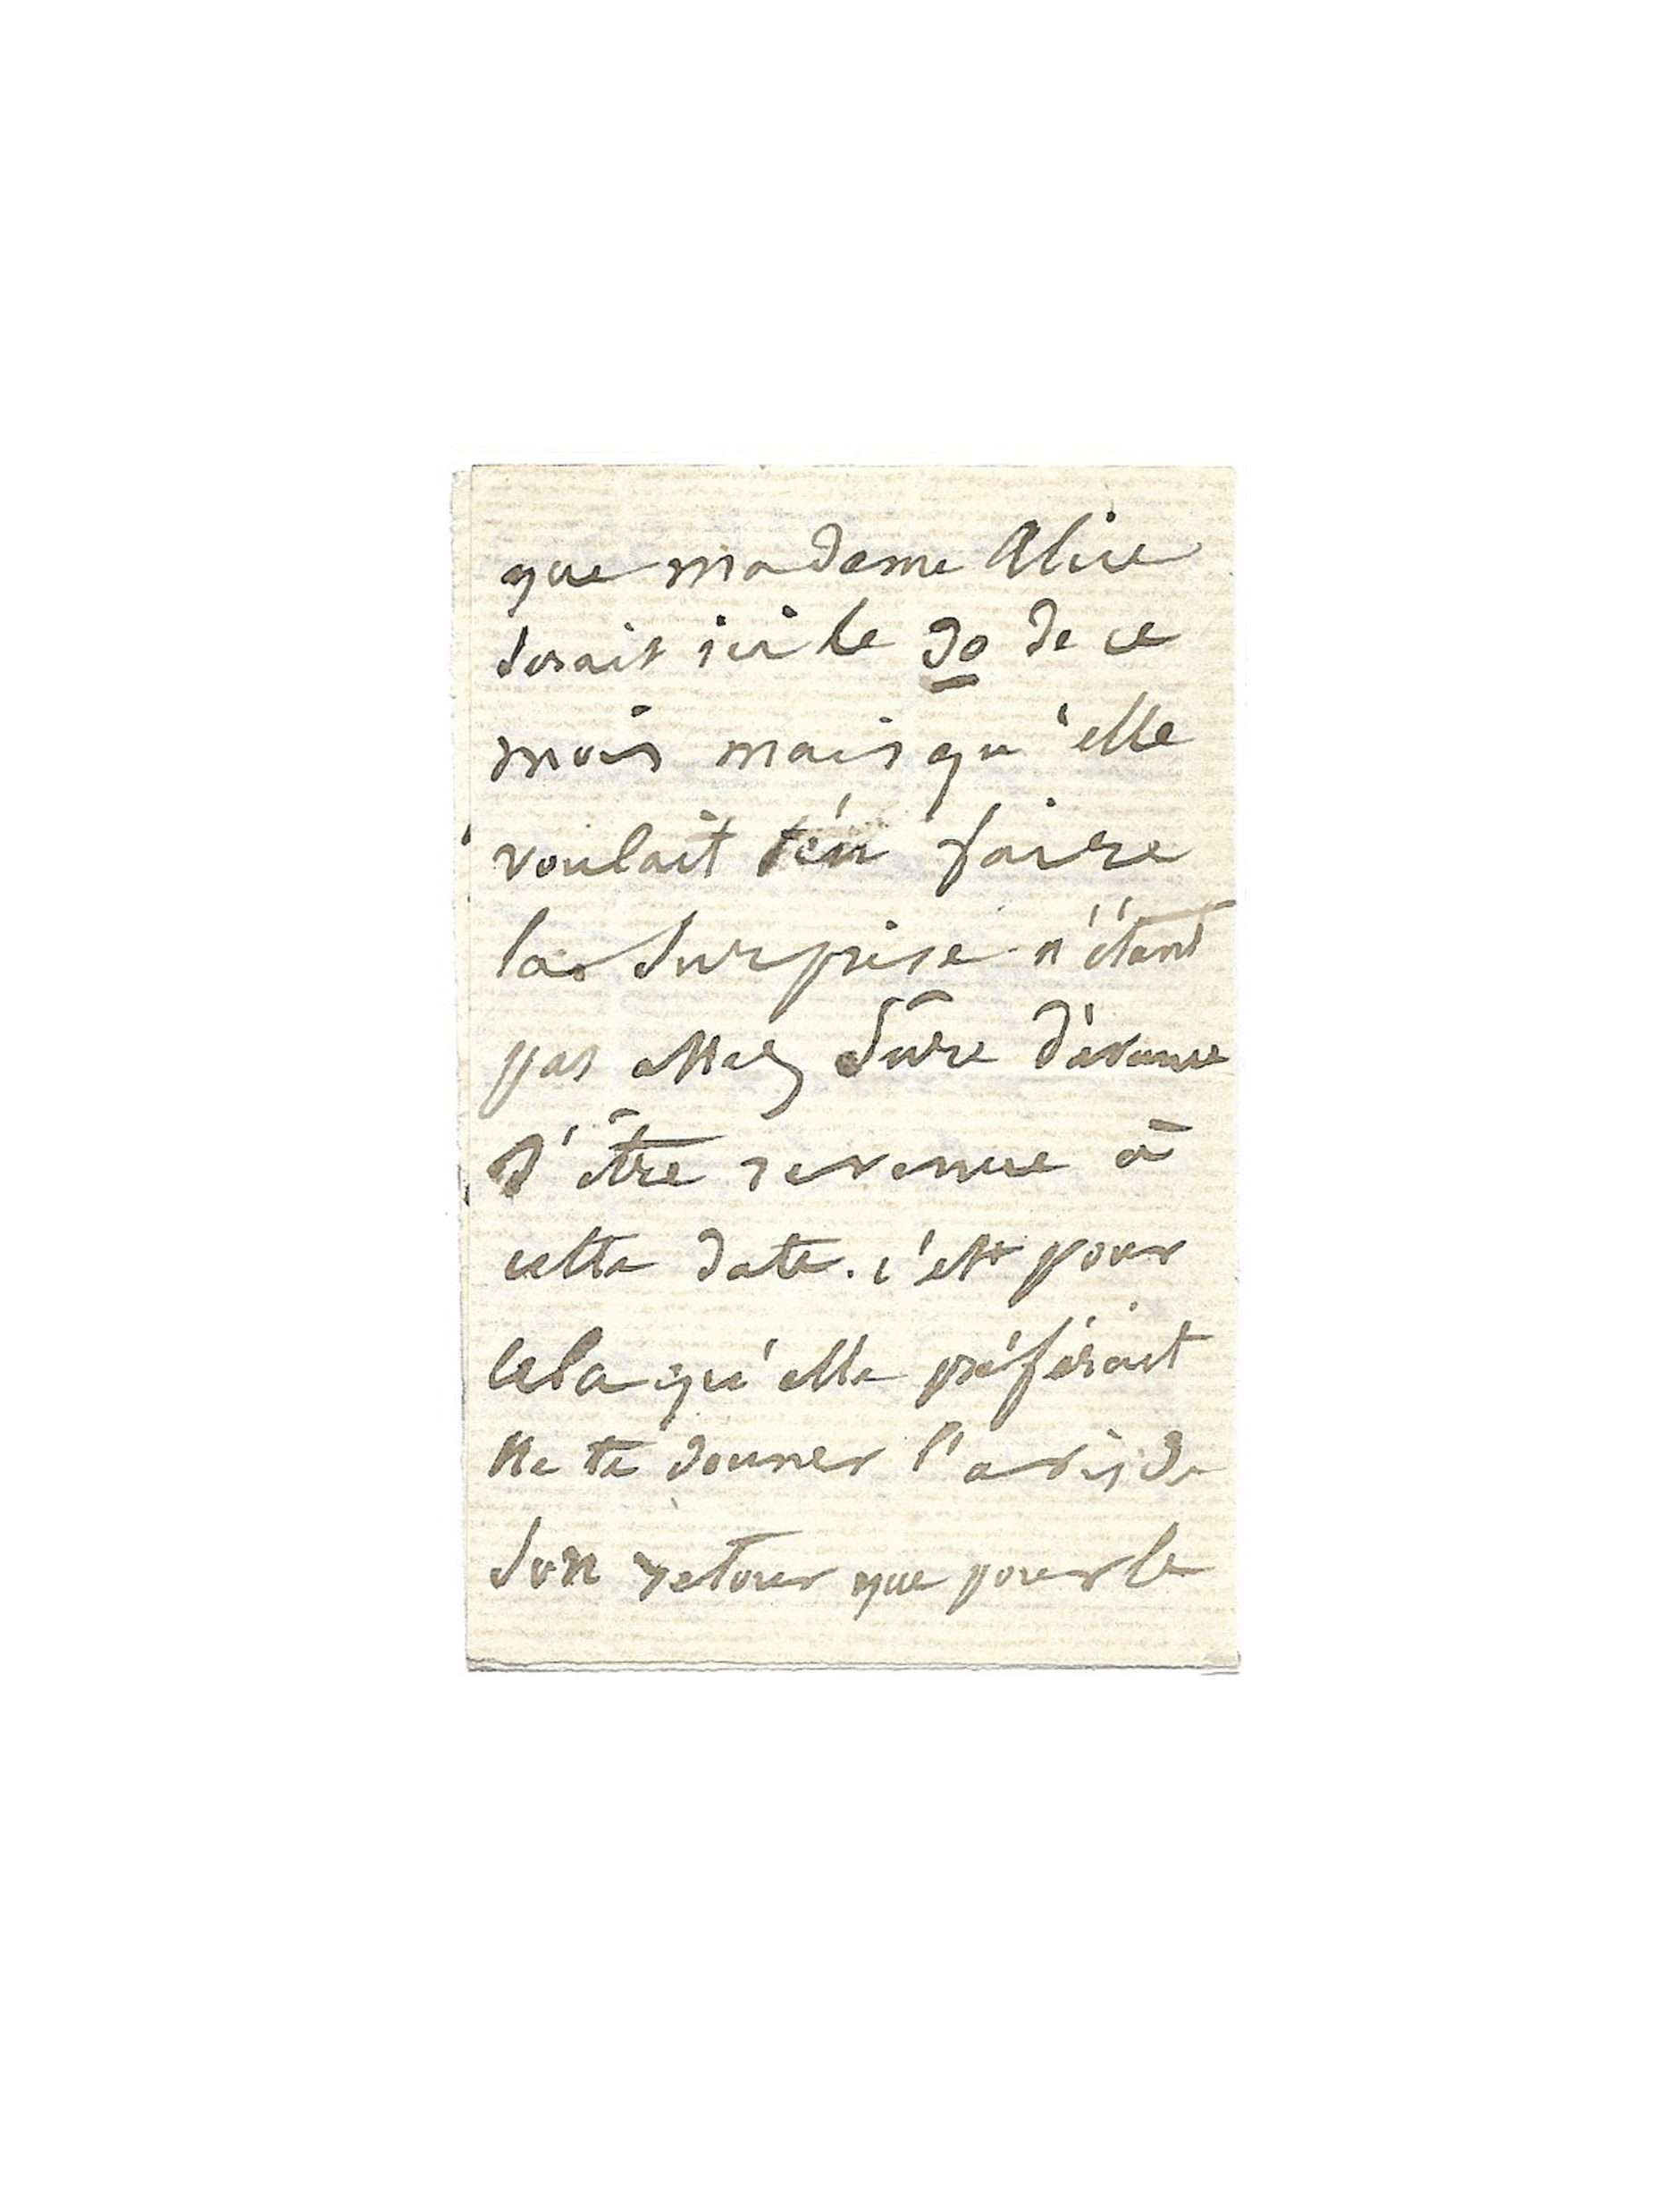 que madame Alice
serait ici le 30 de ce
mois mais qu'elle
voulait t'en faire
la surprise n'étant
pas assez sûre d'avance
d'être revenue à
cette date. c'est pour
cela qu'elle préférait
ne te donner l'avis de
son retour que pour le